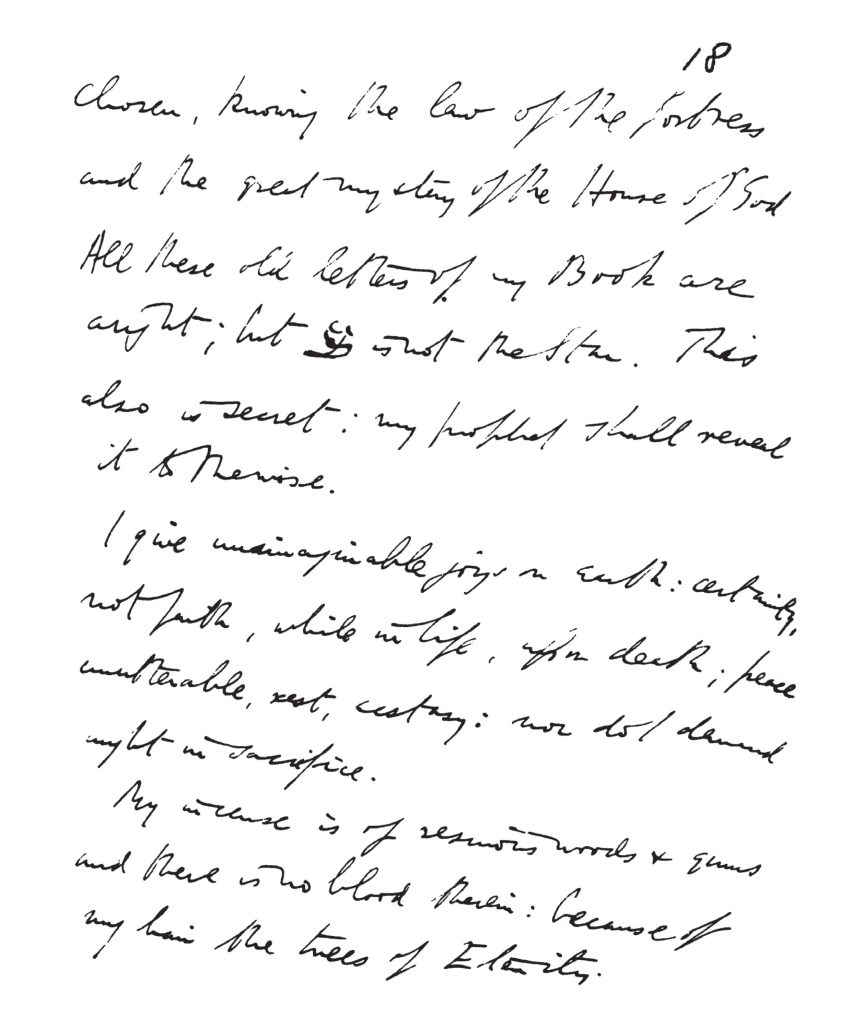 18
chosen, knowing the law of the Fortress
and the great mystery of the House of God
All these old letters of my Book are
aright; but צ is not the Star. This
also is secret: my prophet shall reveal
it to the wise.
I give unimaginable joys on earth: certainty,
not faith, while in life, upon death; peace
unutterable, rest, ecstasy: nor do I demand
aught in sacrifice.
My incense is of resinous woods & gums
and there is no blood therein: because of
my hair the trees of Eternity.